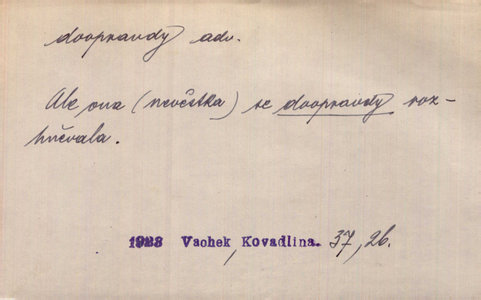 doopravdy adv.
Ale ona (nevěstka) se doopravdy roz-
hněvala.
1923 Vachek, Kovadlina. 37, 26.